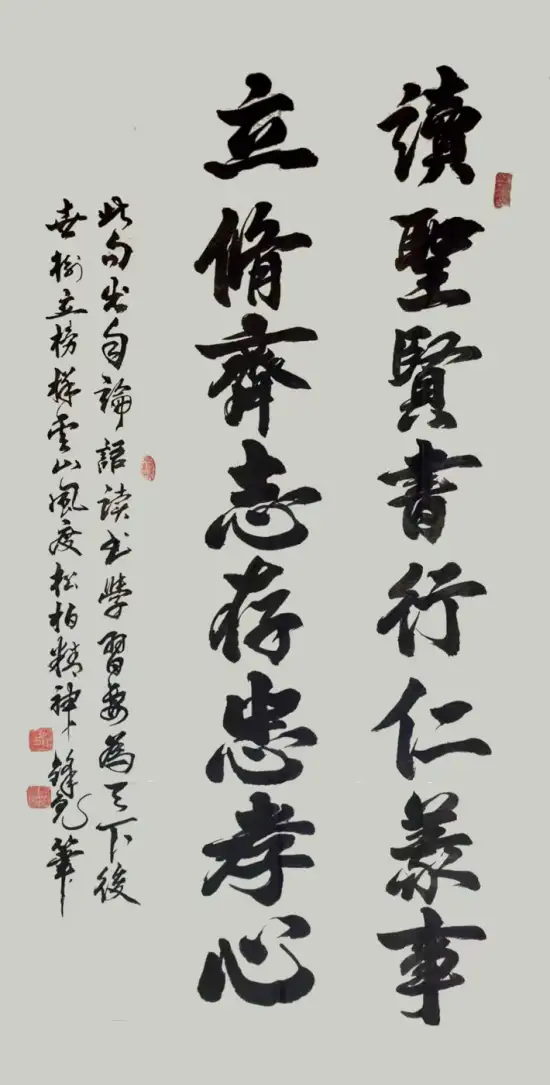 讀聖賢書行仁義事
立脩齊志存忠孝心
此句出自論語读书學習要為天下後
世樹立榜樣雲山風度松柏精神鋒亮筆